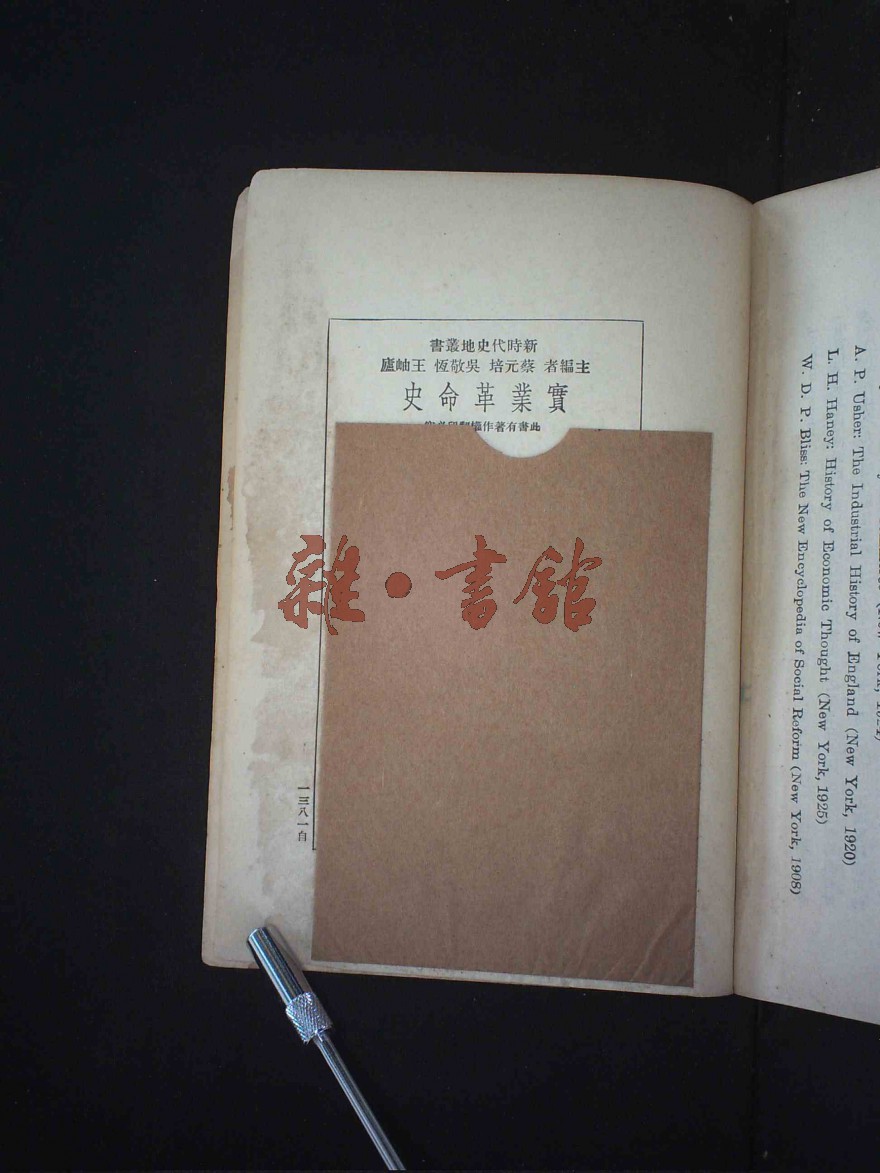 新時代史地叢書
主編者 蔡元培 吳敬恆 王岫廬
實業革命史
此書有著作權翻印必究
雜・書館
一三八一自
A. P. Usher: The Industrial History of England (New York, 1920)
L. H. Haney: History of Economic Thought (New York, 1925)
W. D. P. Bliss: The New Encyclopedia of Social Reform (New York, 1908)